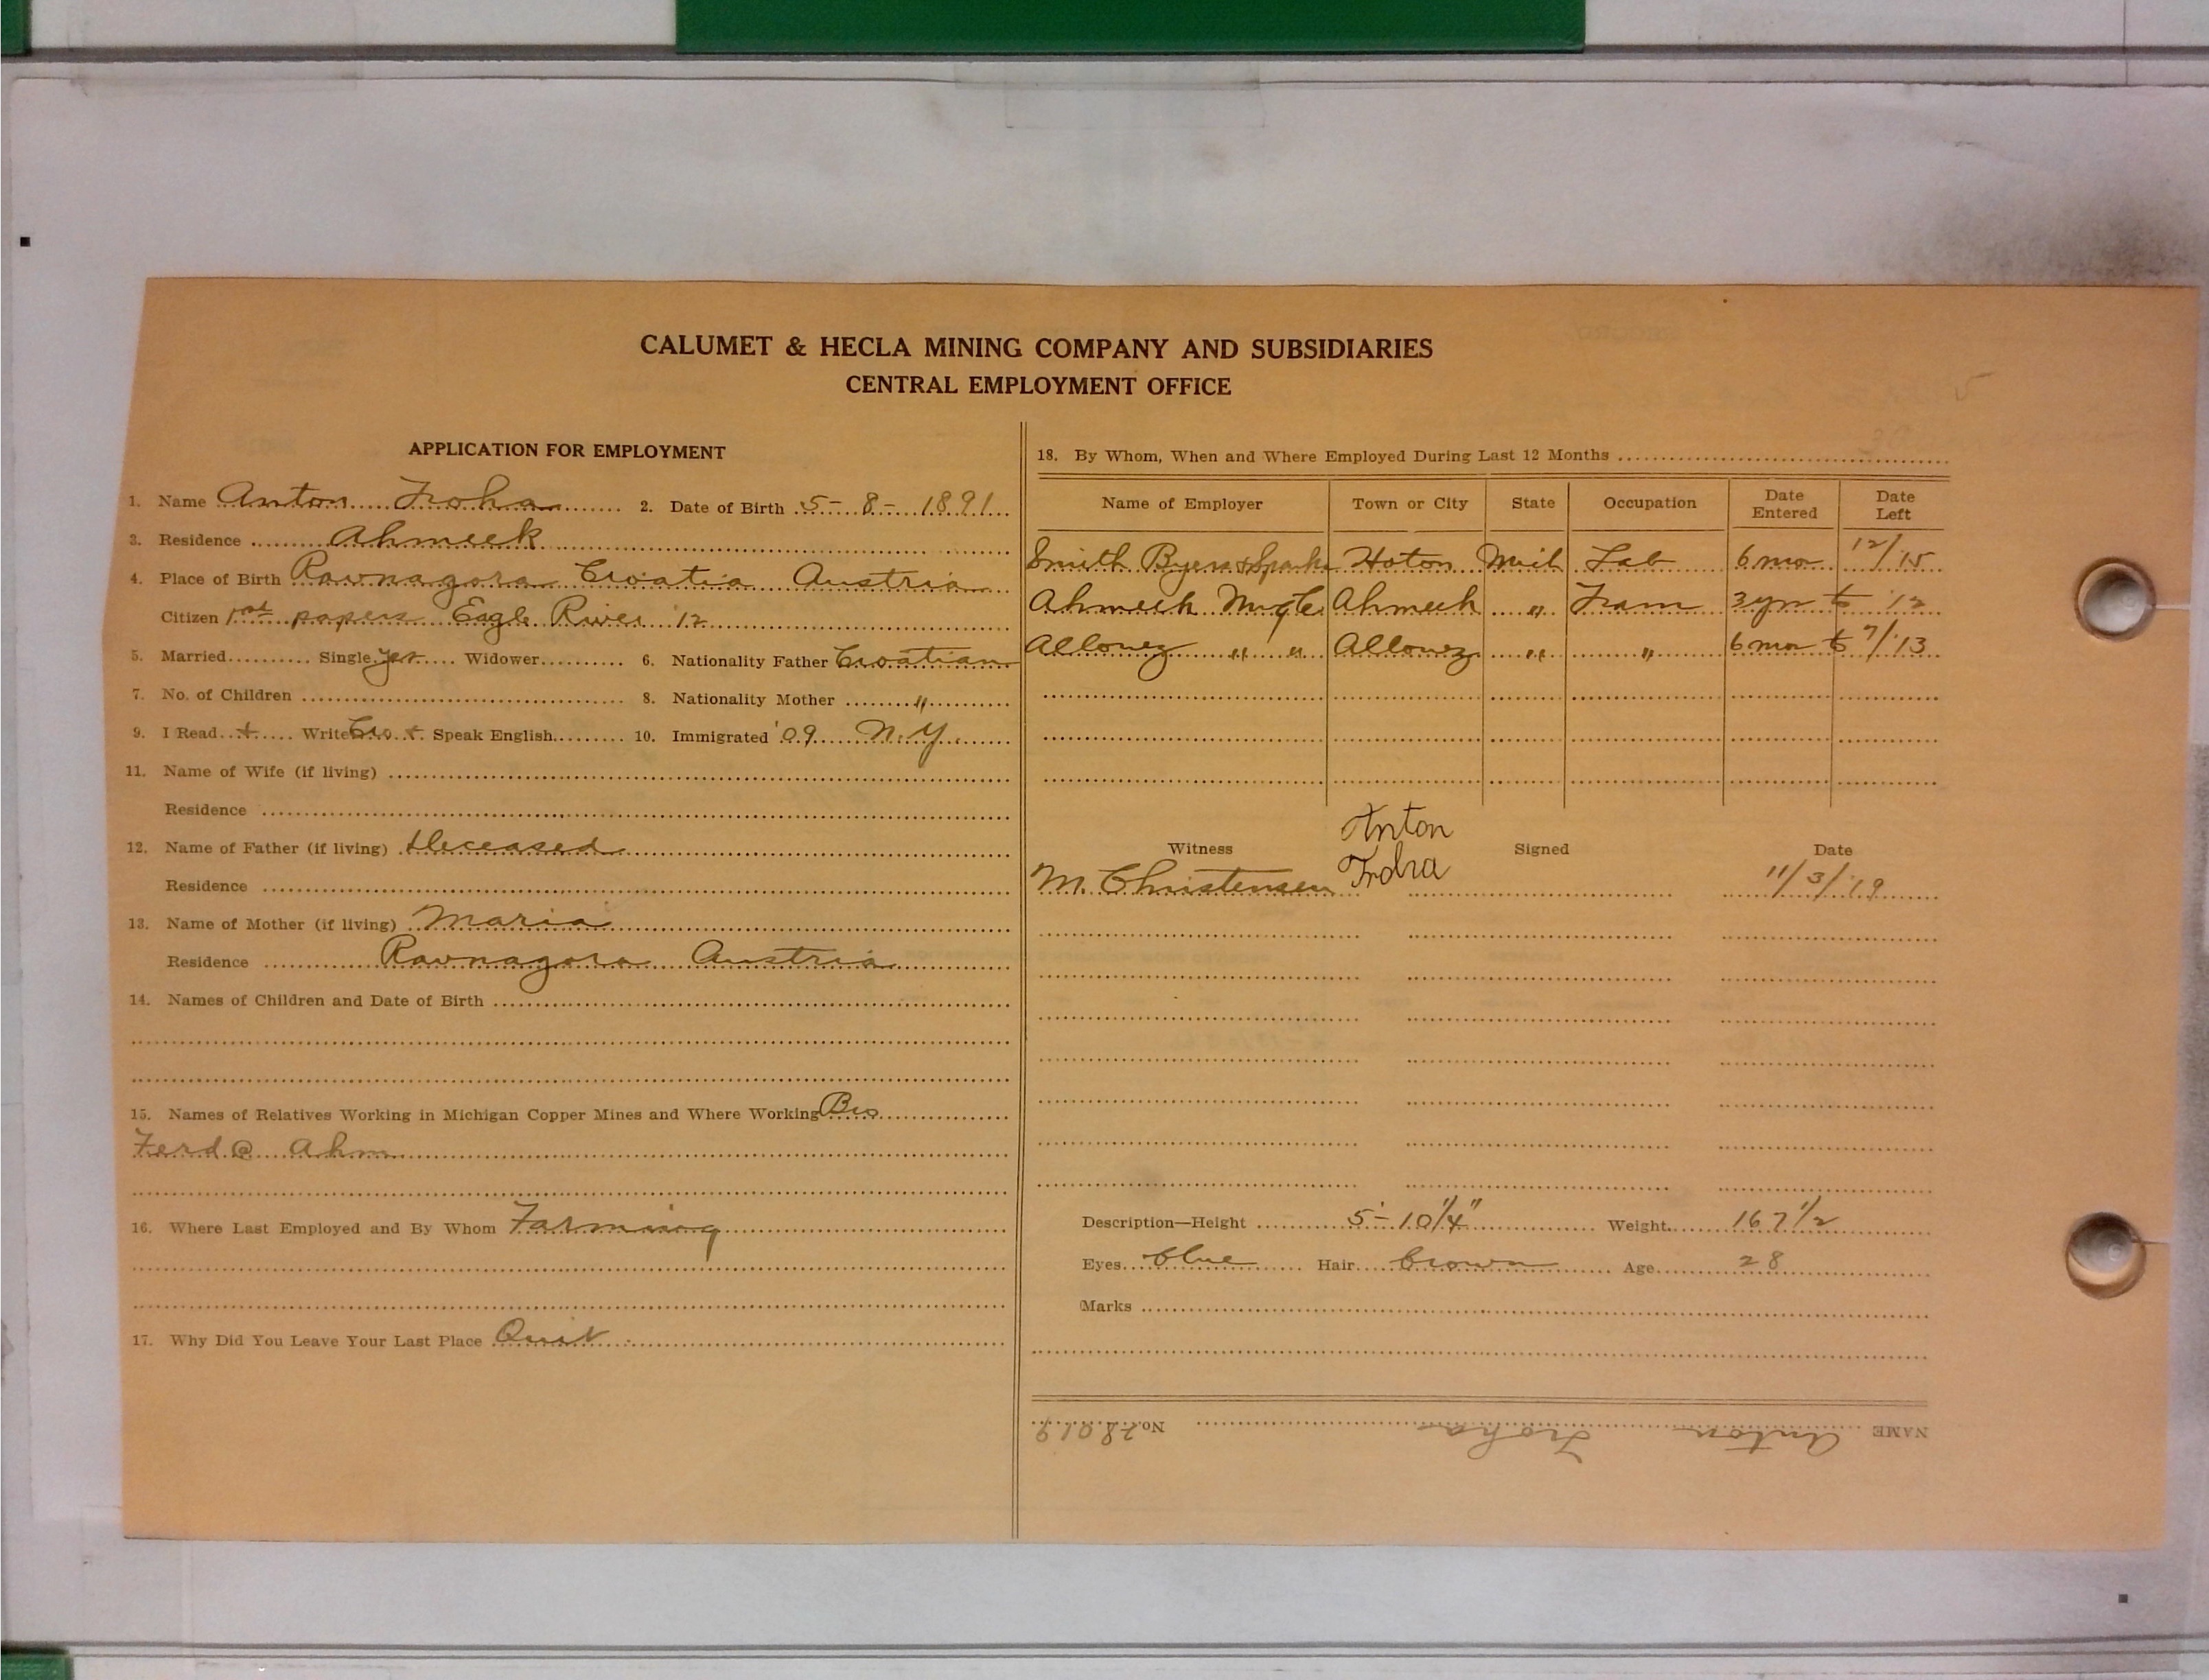 CALUMET & HECLA MINING COMPANY AND SUBSIDIARIES
CENTRAL EMPLOYMENT OFFICE
APPLICATION FOR EMPLOYMENT
1. Name Anton Froha 2. Date of Birth 5-8-1891
3. Residence Ahmeek
4. Place of Birth Ravnagora Croatia Austria
Citizen 1st papers Eagle River '12
5. Married Single yes Widower 6. Nationality Father Croatian
7. No. of Children 8. Nationality Mother "
9. I Read + Write Cro + Speak English 10. Immigrated '09 N.Y.
11. Name of Wife (if living)
Residence
12. Name of Father (if living) Deceased
Residence
13. Name of Mother (if living) Maria
Residence Ravnagora Austria
14. Names of Children and Date of Birth
15. Names of Relatives Working in Michigan Copper Mines and Where Working Bro
Ferd @ Ahm
16. Where Last Employed and By Whom Farming
17. Why Did You Leave Your Last Place Quit
18. By Whom, When and Where Employed During Last 12 Months
Name of Employer Town or City State Occupation Date Entered Date Left
Smith Byers & Sparks Hoton Mich Lab 6 mo 12/15
Ahmeek Mng Co Ahmeek " Tram 3 yrs to '12
Allouez " " Allouez " " 6 mo to 7/'13
Witness Signed Date
Anton
M. Christensen Froha 11/3/19
Description—Height 5'-10 1/4" Weight 167 1/2
Eyes blue Hair brown Age 28
Marks
NAME Anton Froha No. 28019